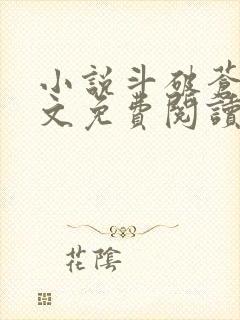 小說斗破蒼
文免費閱讀
花陰